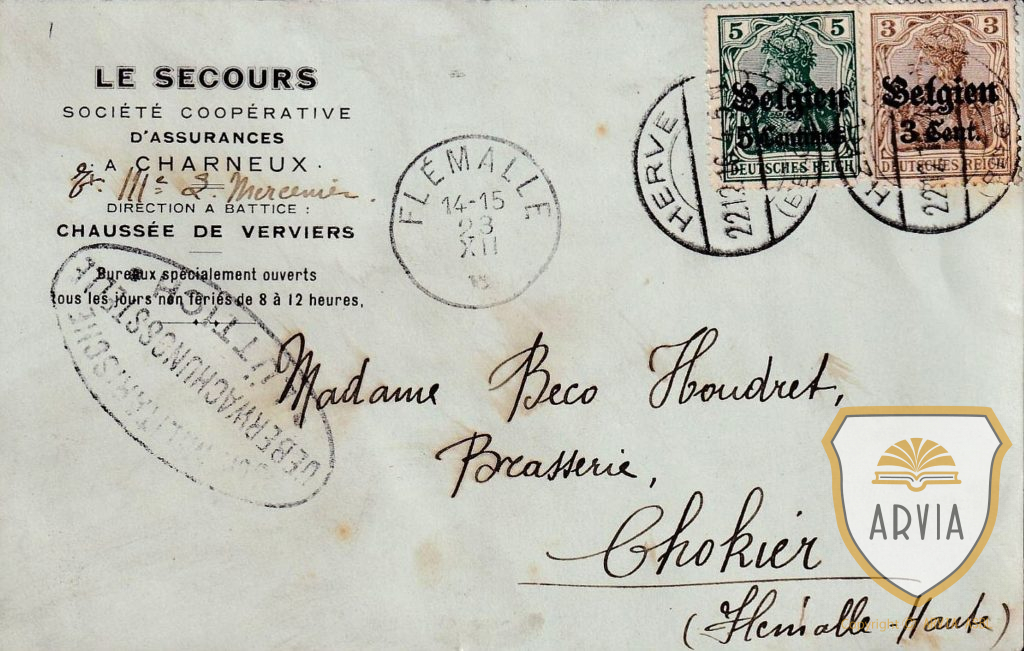 LE SECOURS
SOCIÉTÉ COOPÉRATIVE
D'ASSURANCES
A CHARNEUX.
Mercenier.
DIRECTION A BATTICE :
CHAUSSÉE DE VERVIERS
Bureaux spécialement ouverts
tous les jours non fériés de 8 à 12 heures,
FLÉMALLE
14-15
23
XII
5 5
Belgien
5 Centimes
DEUTSCHES REICH
3 3
Belgien
3 Cent.
DEUTSCHES REICH
HERVE
MILITÄRISCHE
UEBERWACHUNGSSTELLE
LÜTTICH
Madame Beco Houdret,
Brasserie,
Chokier
(Flémalle Haute)
ARVIA